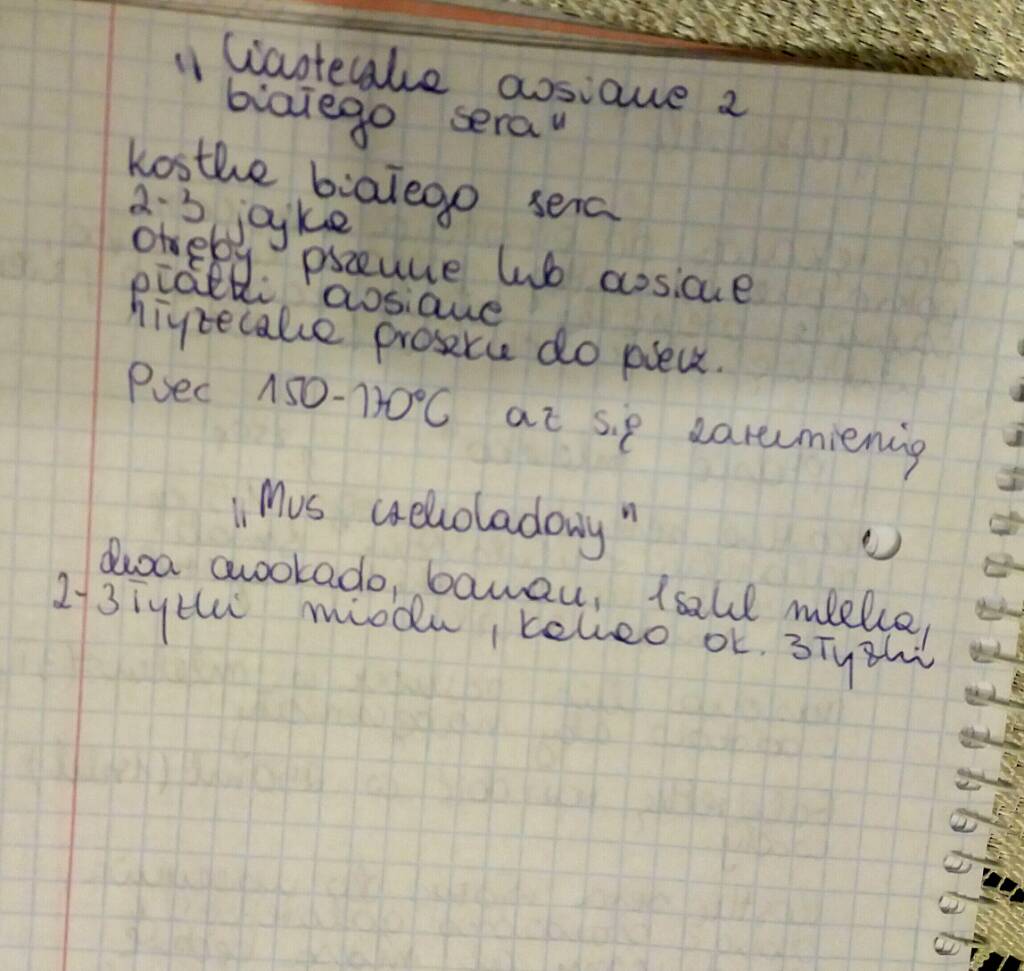 „Ciasteczka owsiane z
białego sera"
kostka białego sera
2-3 jajka
otręby pszenne lub owsiane
płatki owsiane
1 łyżeczka proszku do piecz.
Piec 150-170°C aż się zarumienią
„Mus czekoladowy"
dwa awokado, banan, 1 szkl mleka,
2-3 łyżki miodu, kakao ok. 3 łyżki